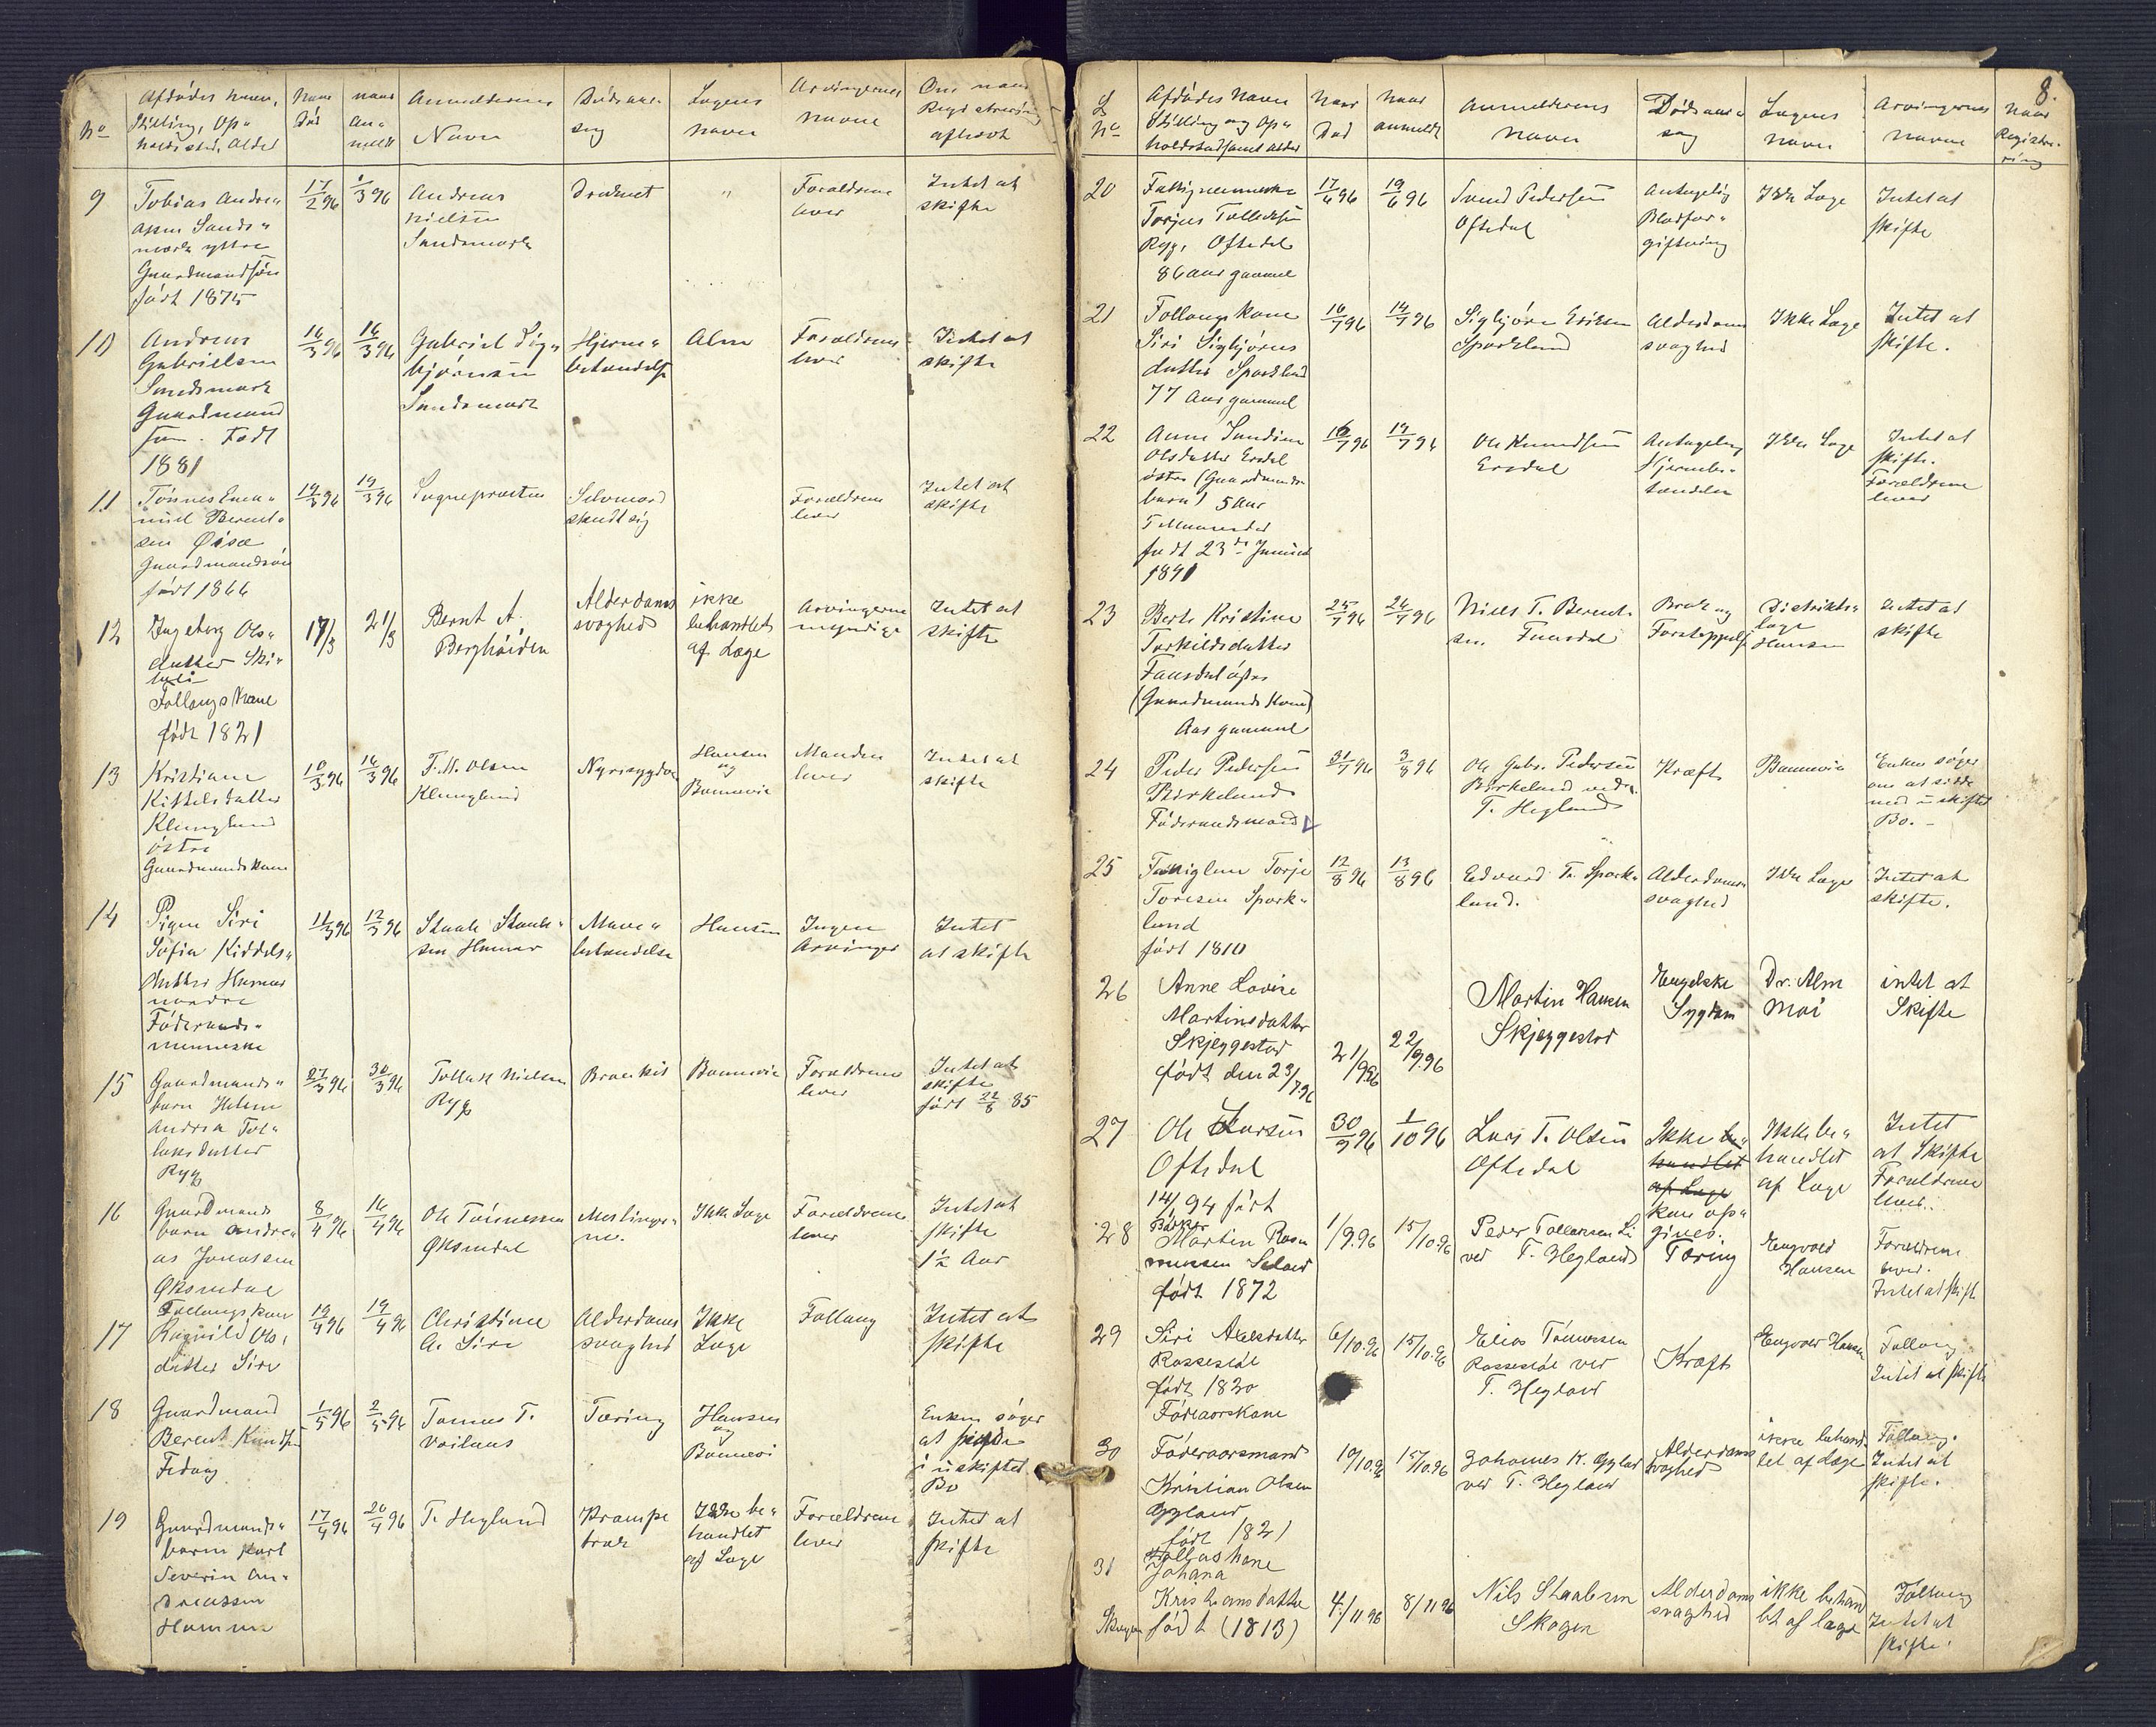 No
Afdødes navn,
Stilling, Op-
holdssted, Alder
Naar
Død
naar
An-
meldt
Anmelderens
Navn
Dødsaar-
sag
Lægens
navn
Arvingernes
navne
Om naar
Registrering
afholdt
9
Tobias Andre-
assen Sands-
mork yttre
Gaardmandssøn
født 1875
17/2 96
1/3 96
Andreas
Nielsen
Sandsmork
Druknet
"
Forældrene
lever
Intet at
skifte
10
Andreas
Gabrielsen
Sandsmork
Gaardmand
søn. Født
1881
16/3 96
16/3 96
Gabriel Sig-
bjørnsen
Sandsmork
Hjerne-
betændelse
Alm
Forældrene
lever
Intet at
skifte
11
Tønnes Ema-
nuel Berent-
sen Øisæ
Gaardmandssøn
født 1866
19/3 96
19/3 96
Sognepresten
Selvmord
skudt sig
Forældrene
lever
Intet at
skifte
12
Ingeborg Ols-
datter Ski-
beli
Follaugskone
født 1821
17/3
21/3
Bernt A.
Berghøiden
Alderdoms
svaghed
ikke
behandlet
af Læge
Arvingerne
myndige
Intet at
skifte
13
Kristiane
Kittelsdatter
Klungland
østre
Gaardmandskone
10/3 96
16/3 96
T. N. Olsen
Klungland
Nyresygdom
Hansen
og
Bonnevie
Manden
lever
Intet at
skifte
14
Pigen Siri
Sofia Kiddels-
datter Humar
nordre
Føderaads-
menneske
11/3 96
12/3 96
Staale Staale-
sen Humar
Mave-
betændelse
Hansen
Ingen
Arvinger
Intet
at skifte
15
Gaardmands-
barn Helene
Andrea Tol-
laksdatter
Rygg
27/3 96
30/3 96
Tollak Nielsen
Rygg
Bronkit
Bonnevie
Forældrene
lever
Intet at
skifte
født 22/8 85
16
Gaardmands
barn Andre-
as Jonassen
Øksendal
8/4 96
16/4 96
Ole Tønnessen
Øksendal
Meslinger-
ne.
Ikke Læge
Forældrene
lever
Intet at
skifte
1½ Aar
17
Follaugskone
Ragnild Ols-
datter Sire
19/4 96
19/4 96
Christine
A. Sire
Alderdoms
svaghed
Ikke
Læge
Follaug
Intet at
skifte
18
Gaardmand
Berent Knudsen
Fidang
1/5 96
2/5 96
Tomas T.
Tæring
Hansen
og
Bonnevi
Enken søger
at sidde
i uskiftet
Bo
19
Gaardmands-
barn Karl
Severin An-
dreassen
Hamre
17/4 96
20/4 96
T. Hegland
Krampe
trak
Ikke be-
handlet
af Læge
Forældrene
lever
Intet at
skifte
8.
L
No
Afdødes Navn
Stilling og Op-
holdssted samt Alder
Naar
Død
Naar
anmeldt
Anmelderens
Navn
Dødsaar-
sag
Lægens
navn
Arvingernes
navne
Naar
Registre-
ring
20
Fattigmenneske
Torjus Tollecksen
Rygg, Oftedal
86 aar gammel
17/6 96
19/6 96
Svend Pedersen
Oftedal
Antagelig
Blodfor-
giftning
Ikke Læge
Intet at
skifte
21
Follaugs kone
Siri Sigbjørns
datter Sparkland
77 Aar gammel
14/7 96
Sigbjørn Eriksen
Sparkland
Alderdoms
svaghed
Ikke Læge
Intet at
skifte.
22
Anne Gundine
Olsdatter Eredal
østre (Gaardmands
barn) 5 Aar
født 23de Januar
1891
16/7 96
19/7 96
Ole Knudsen
Eredal
Antagelig
Hjernebe-
tændelse
Ikke Læge
Intet at
skifte.
Forældrene
lever
23
Berte Kristine
Torkildsdatter
Fansdal østre
(Gaardmands Kone)
Aar gammel
25/7 96
26/7 96
Niels T. Berent-
sen Fansdal
Brok og
Forstoppelse
Distrikts-
læge
Hansen
Intet at
skifte
24
Peder Pedersen
Birkeland
Føderaadsmand
31/7 96
3/8 96
Ole Gabr. Pedersen
Birkeland ved
T. Hegland
Kræft
Bonnevie
Enken søger
om at sidde
med uskiftet
Bo.
25
Fattiglem Torje
Toresen Spark-
land
født 1810
12/8 96
13/8 96
Edvard Tr. Spark-
land.
Alderdoms-
svaghed
Ikke Læge
Intet at
skifte.
26
Anne Lovise
Martinsdatter
Skjeggestad
født den 23/7 96
21/9 96
22/9.96
Martin Hansen
Skjeggestad
Engelske
Sygdom
Dr. Alm
Moi
intet at
Skifte
27
Ole Larsen
Oftedal
14/ 94 født
30/9 96
1/10 96
Lars T. Olsen
Oftedal
Ikke be-
handlet
af Læge
kan op-
gives.
Ikke be-
handlet
af Læge
Intet
at Skifte
Forældrene
lever.
28
Martin Ras-
mussen Seland
født 1872
1/9.96
15/10.96
Peder Tollaksen Li
ved T. Hegland
Tæring
Engvald
Hansen
Forældrene
lever.
Intet at skifte
29
Siri Akselsdatter
Rossestøl
født 1820
Føderaadskone
6/10.96
15/10.96
Elias Tønnessen
Rossestøl ved
T. Hegland
Kræft
Engvald Hansen
Follaug
Intet at skifte
30
Føderaadsmand
Kristian Olsen
Øygland
født 1821
10/10.96
15/10.96
Johannes K. Øygland
ved T. Hegland
Alderdoms
svaghed
ikke behand-
let af Læge
Follaug.
Intet at
skifte.
31
Johana
Kristiansdatter
Skogen født (1813)
4/11 96
8/11 96
Nils Staalesen
Skogen
Alderdoms
svaghed
ikke behand
let af læge
Follaug
Intet at
skifte.